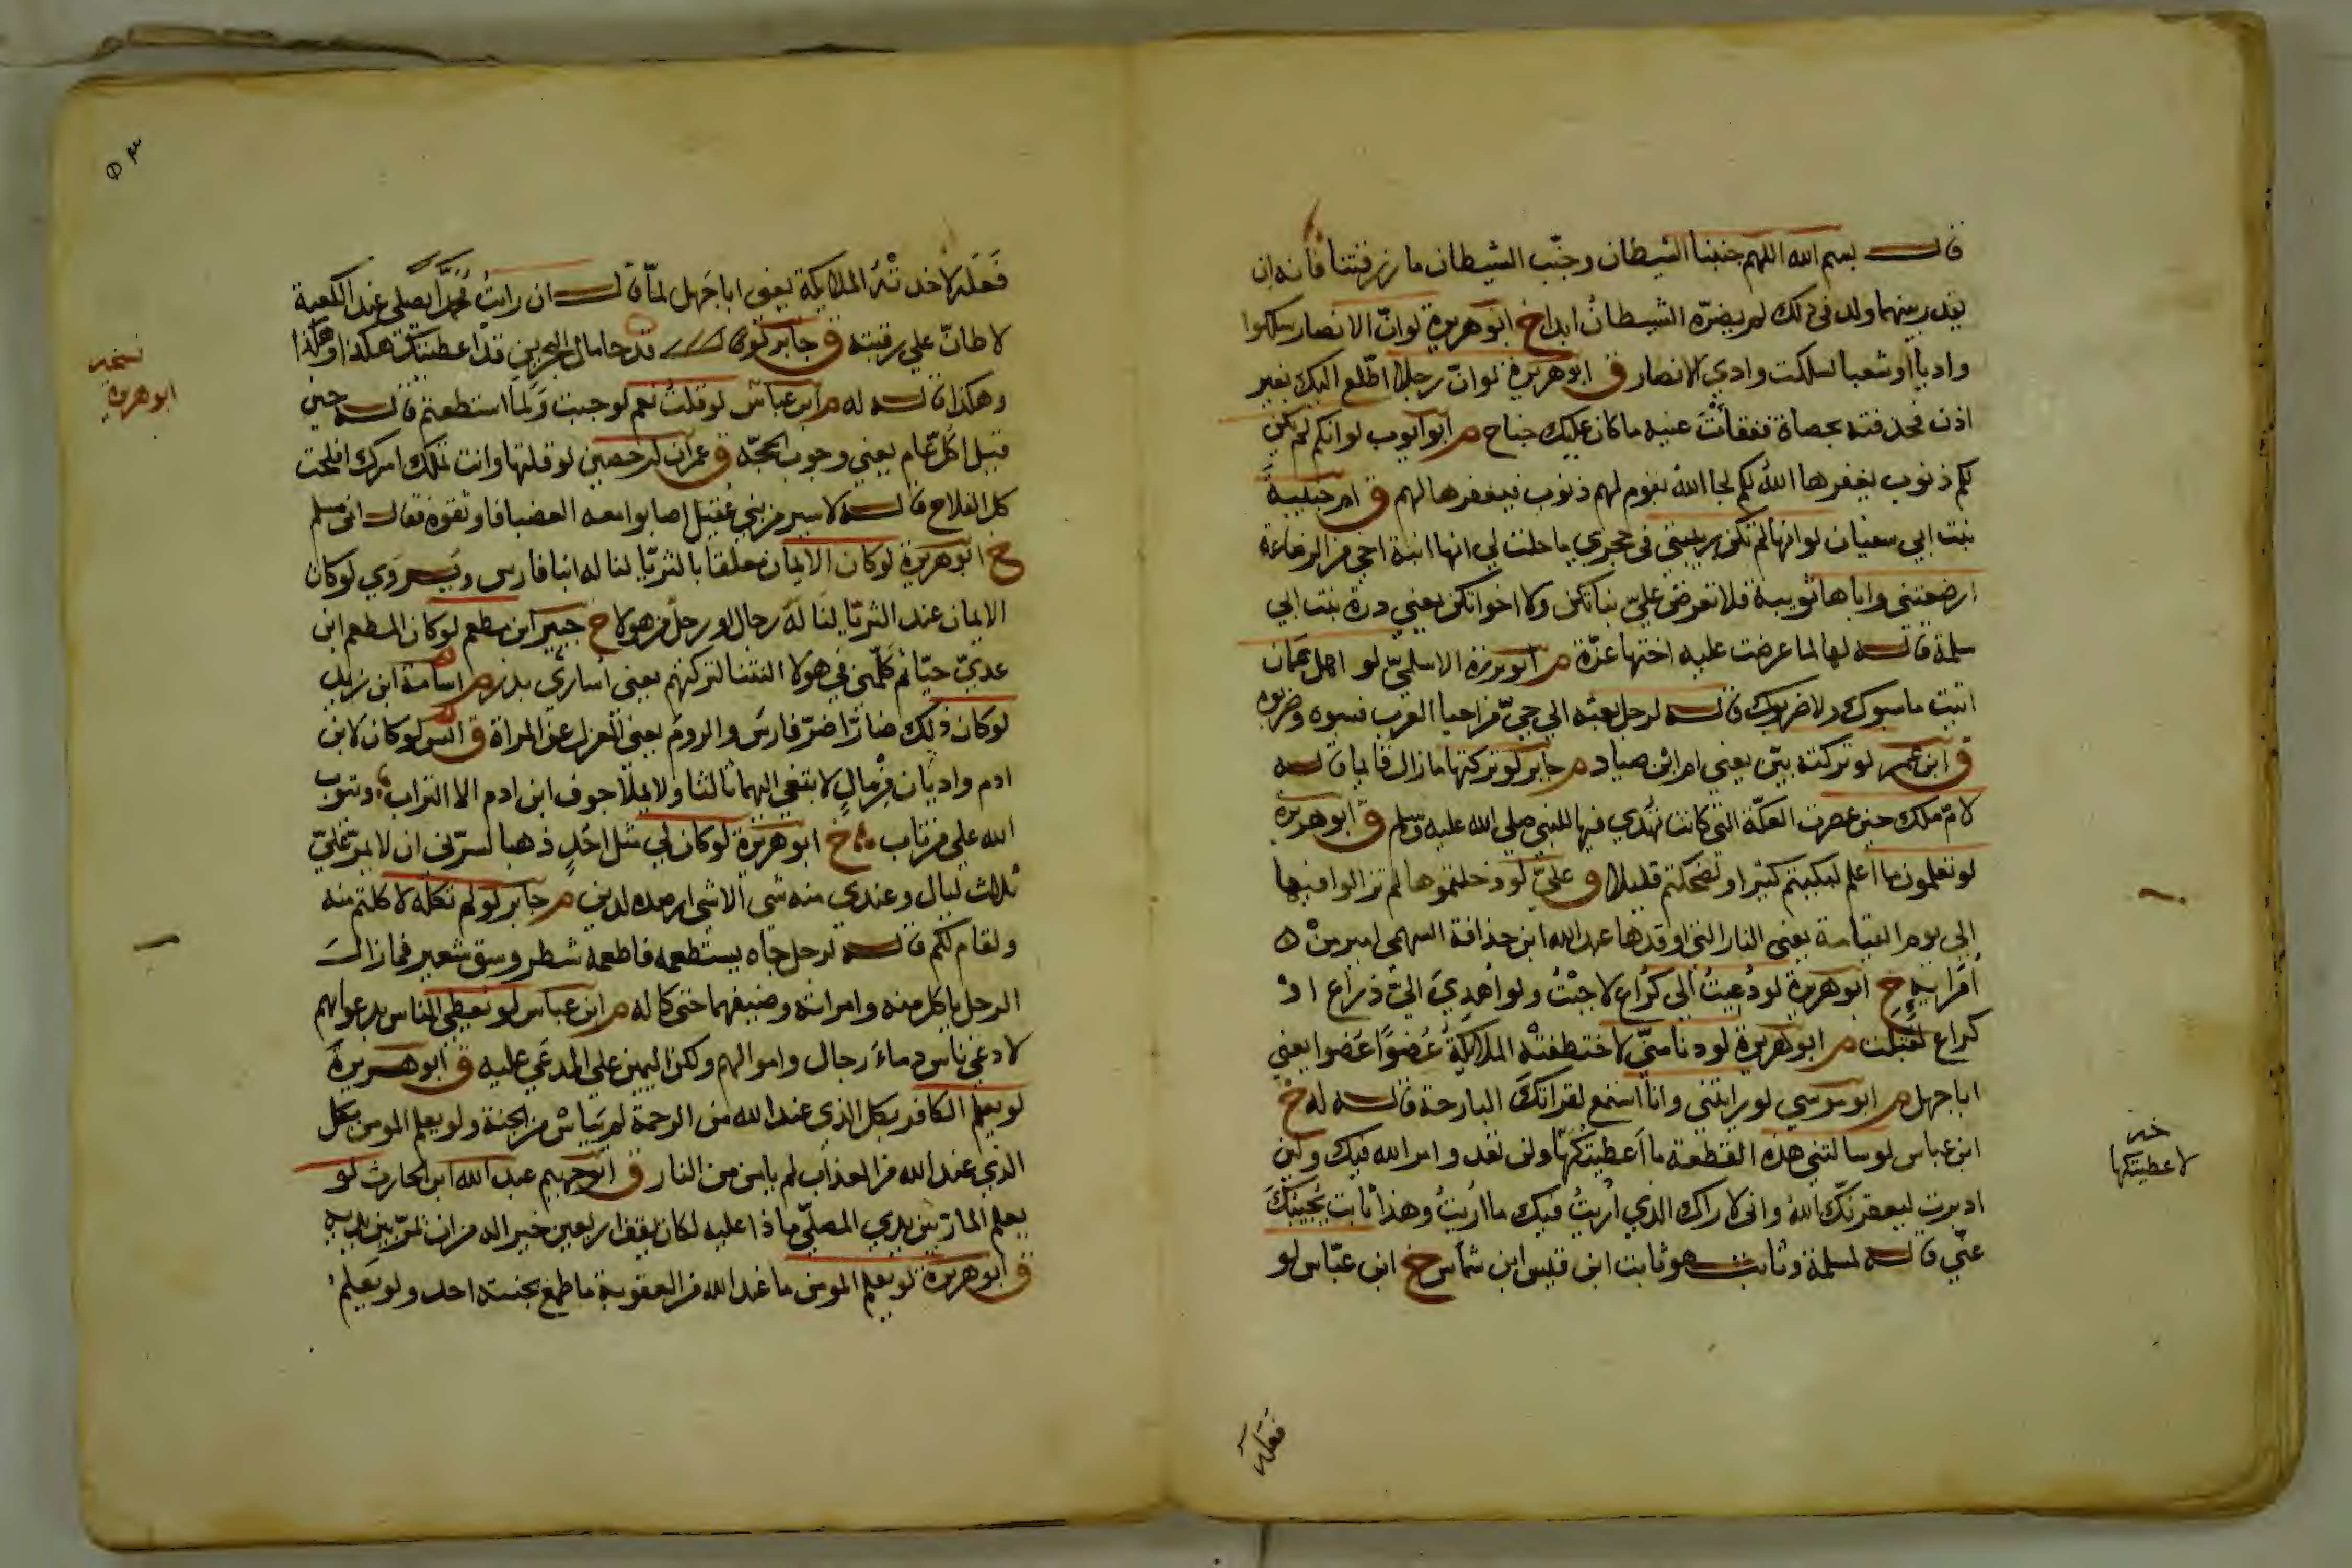 قال بسم الله اللهم جنبنا الشيطان وجنّب الشيطان ما رزقتنا فانه ان
يقدر بينهما ولد في ذلك لم يضرّه الشيطان ابدا خ ابو هريرة لو انّ الانصار سلكوا
واديا او شعبا لسلكت وادي الانصار ق ابو هريرة لو انّ رجلا اطّلع اليك بغير
اذن فحذفته بحصاة ففقأت عينه ما كان عليك جناح م ابو ايوب لو انكم لم تكن
لكم ذنوب يغفرها الله لكم لجا الله بقوم لهم ذنوب فيغفرها لهم ق ام حبيبة
بنت ابي سفيان لو انها لم تكن ربيبتي في حجري ما حلت لي انها ابنة اخي من الرضاعة
ارضعتني واباها ثويبة فلا تعرضن عليّ بناتكن ولا اخواتكن يعني درة بنت ابي
سلمة قاله لها لما عرضت عليه اختها عزّة م ابو برزة الاسلميّ لو اهل عمان
اتيت ما سبوك ولا ضربوك قاله لرجل بعثه الي حيّ من احيا العرب فسبوه وضربوه
ق ابن عمر لو تركته بيّن يعني امر ابن صياد م جابر لو تركتها ما زال قايما قاله
لام ملك حين عصرت العكّة التي كانت تهدي فيها للنبي صلي الله عليه وسلم ق ابو هريرة
لو تعلمون ما اعلم لبكيتم كثيرا ولضحكتم قليلا ق عليّ لو دخلتموها لم تزالوا فيها
الي يوم القيامة يعني النار التي اوقدها عبد الله ابن حذافة السهمي امير من ه
امرايه خ ابو هريرة لو دُعيتُ الي كراع لاجبْتُ ولو اهدي اليّ ذراع او
كراع لقبلت م ابو هريرة لو دنا منّي لاختطفتْه الملايكةُ عُضوًا عُضوا يعني
ابا جهل م ابو موسي لو رايتني وانا استمع لقراتك البارحة قاله له خ
ابن عباس لو سالتني هذه القطعة ما اعطيتكها ولن تعد و امر الله فيك ولين
ادبرت ليعقرنّك اللهُ واني لاراك الذي اُريتُ فيك ما اُريتُ وهذا ثابت يُجيبُكَ
عنّي قاله لمسلمة وثابت هو ثابت ابن قيس ابن شماس خ ابن عبّاس لو
خـ
لاعطيتكها
فعله
فَعَله لاخذتْهُ الملايكة يعني ابا جهل لمّا قال ان رايتُ محمدًا يصلي عند الكعبة
لاطانّ علي رقبته ق جابر لو قد جا مال البحرين قد اعطيتك هكذا وهكذا
وهكذا قاله له م ابن عباس لو قلتُ نعم لوجبت ولما استطعتم قاله حين
قيل اكلّ عام يعني وجوب الحجّة ق عمران ابن حصين لو قلتها وانت تملك امرك افلحت
كل الفلاح قاله لاسير من بني عُقيل اصابوا معه العضبا فاوثقوه فقال اني مسلم
خ ابو هريرة لو كان الايمان معلقا بالثريّا لناله ابنا فارس ويروي لو كان
الايمان عند الثريّا لناله رجال او رجل من هولا خ جبير ابن مطعم لو كان المطعم ابن
عديّ حيّا ثم كلّمني في هولا النتنا لتركتهم يعني اساري بدر م اسامة ابن زيد
لو كان ذلك ضارّا ضرّ فارسَ والروم يعني العزل عن المراة ق انس لو كان لابن
ادم واديان من مال لابتغي اليهما ثالثا ولا يملا جوف ابن ادم الا التراب ويتوب
الله علي من تاب خ ابو هريرة لو كان لي مثل احُدٍ ذهبا لسرّني ان لا يمر عليّ
ثلاث ليال وعندي منه شي الا شي ارصده لدين م جابر لو لم تكله لاكلتم منه
ولقام لكم قاله لرجل جاه يستطعمه فاطعمه شطر وسق شعير فما زال
الرجل ياكل منه وامراته وضيفهما حتي كاله م ابن عباس لو يعطي الناس بدعواهم
لادعي ناس دماءَ رجال واموالهم ولكن اليمين علي المدعَي عليه ق ابو هريرة
لو يعلم الكافر بكل الذي عند الله من الرحمة لم يياسْ من الجنة ولو يعلم المومن بكل
الذي عند الله من العذاب لم يامن من النار ق ابو جهيم عبد الله ابن الحارث لو
يعلم المار بين يدي المصلّي ماذا عليه لكان يقف اربعين خير اله من ان يمرّ بين يديه
ق ابو هريرة لو يعلم المومن ما عند الله من العقوبة ما طمع بجنته احد ولو يعلم
نسخه
ابو هريرة